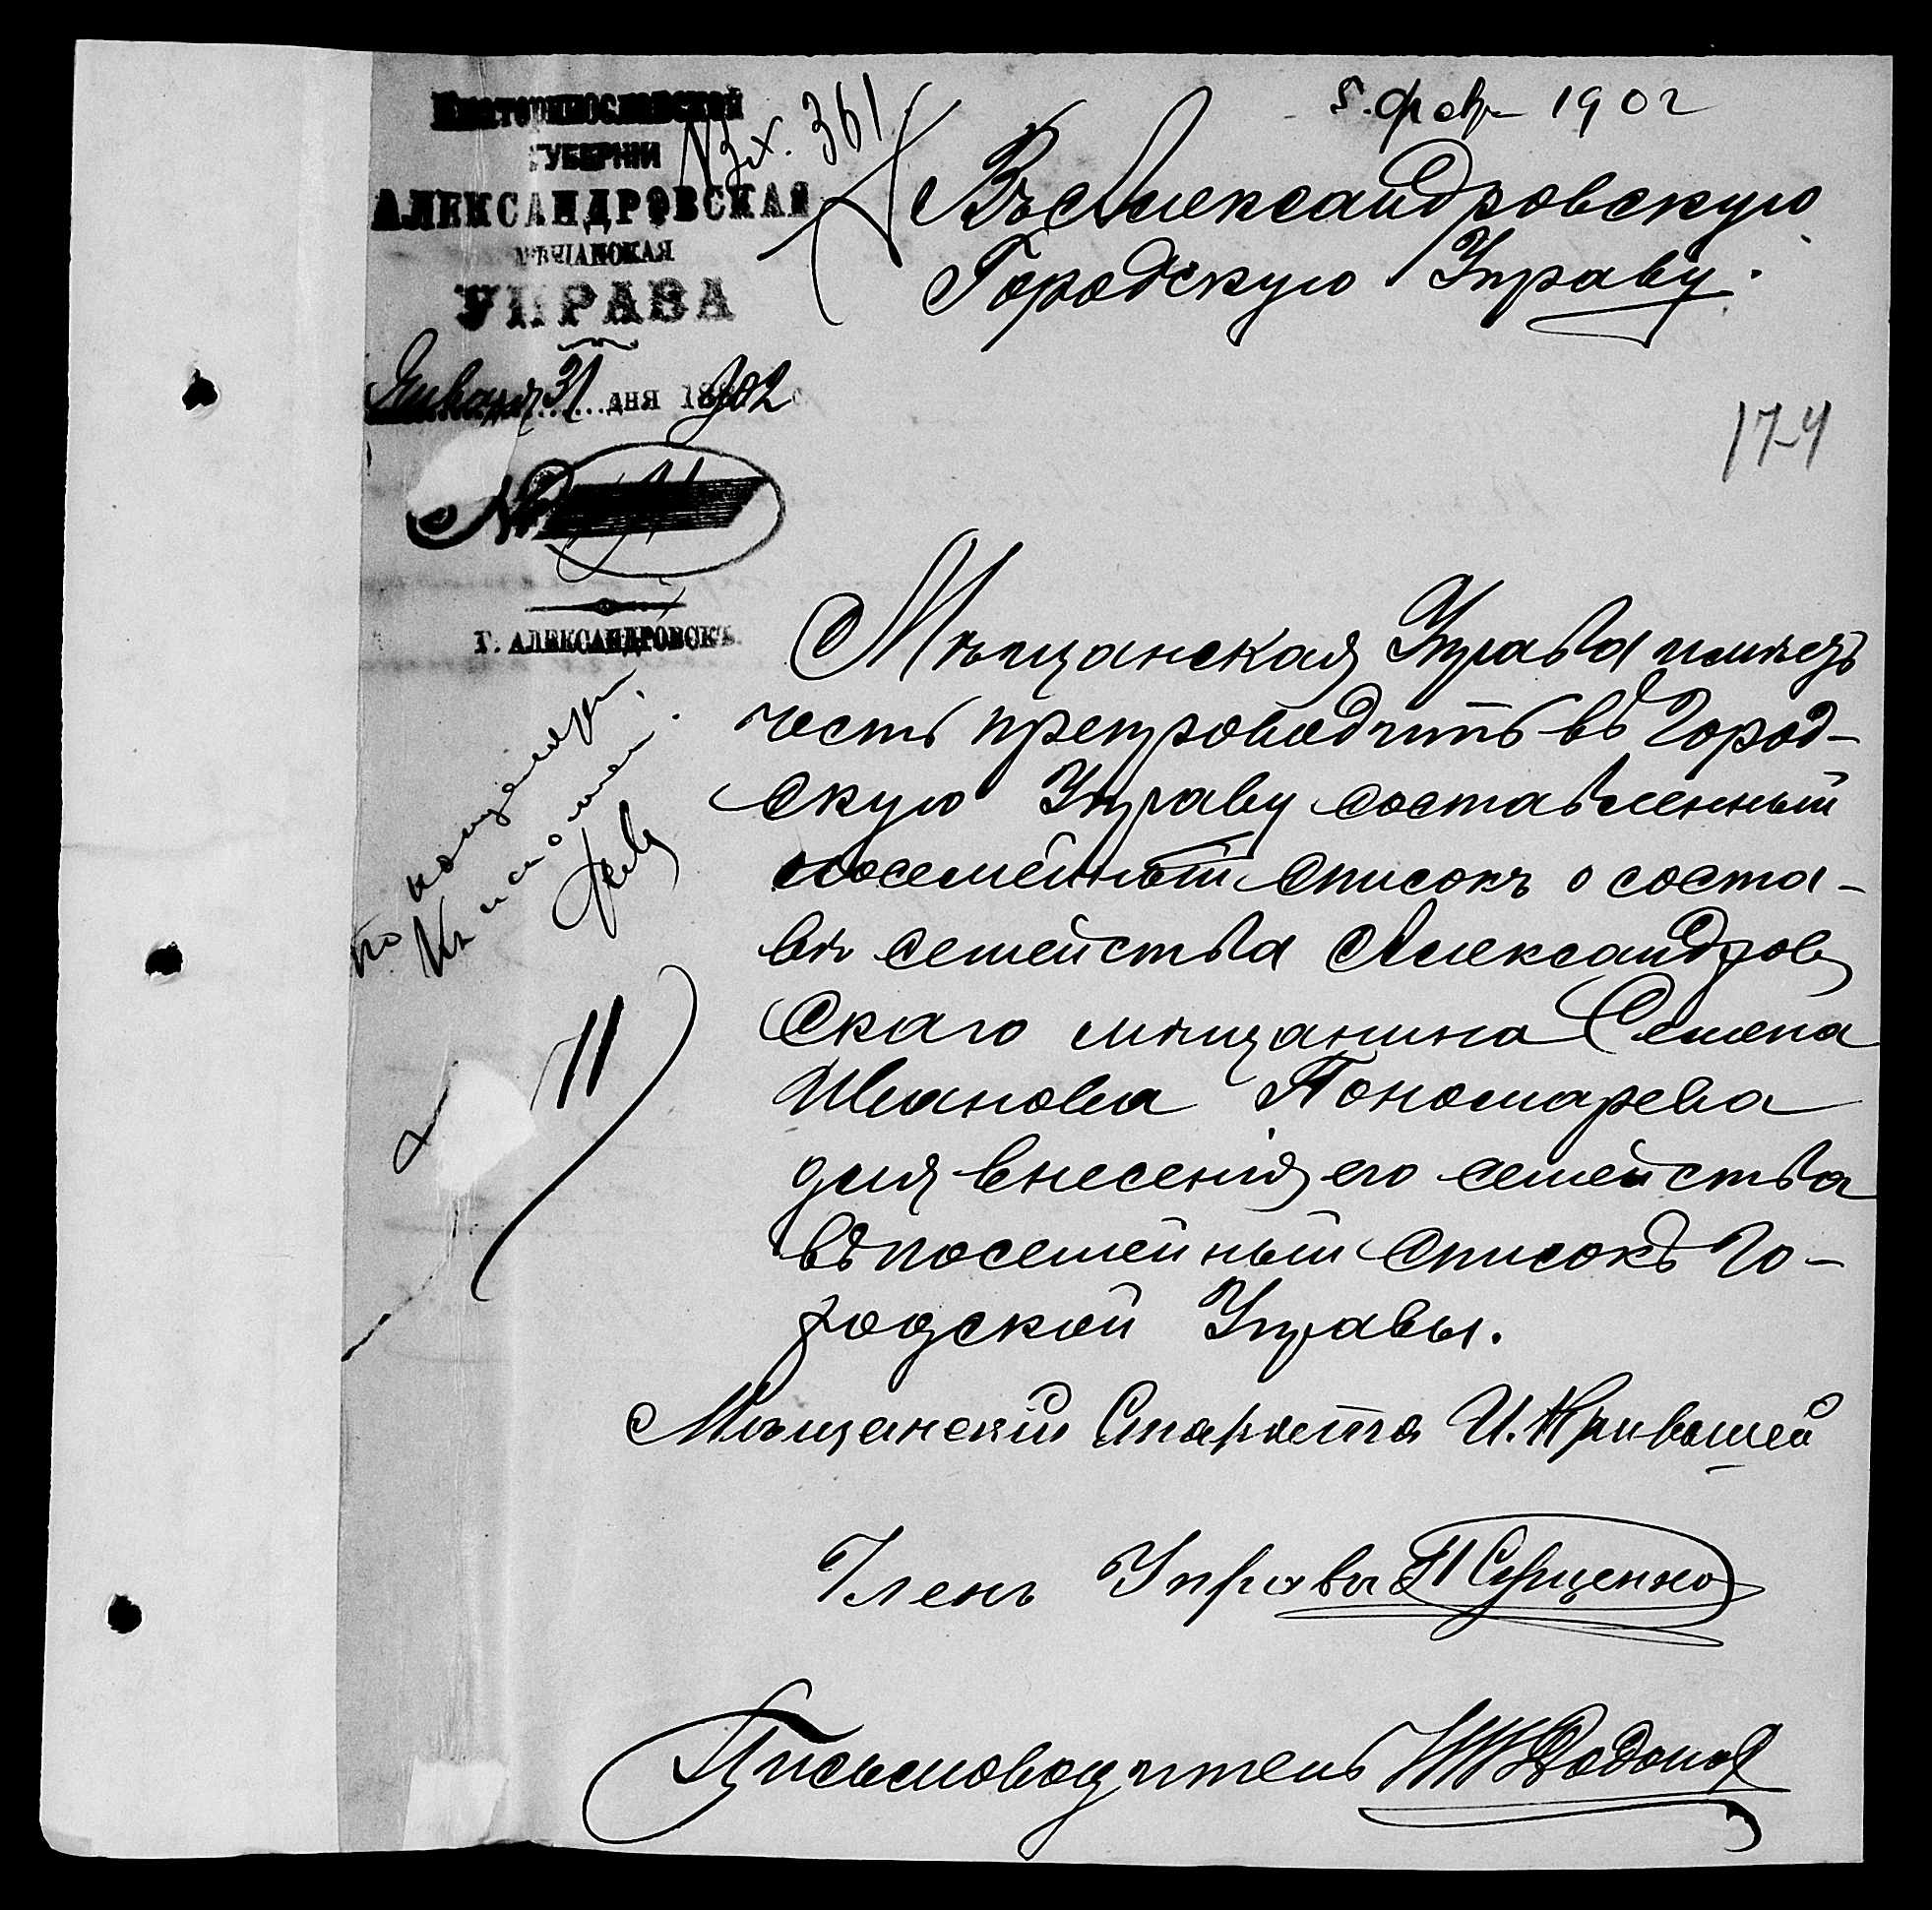 Екатеринославской
ГУБЕРНІИ
АЛЕКСАНДРОВСКАЯ
МѢЩАНСКАЯ
УПРАВА
Января 31 дня 1902
№
Г. АЛЕКСАНДРОВСКЪ
Вх. 361
5. февр 1902
Въ Александровскую
Городскую Управу.
174
Мѣщанская Управа имѣетъ
честь препроводить въ Город-
скую Управу составленный
посемейный списокъ о соста-
вѣ семейства Александров
скаго мѣщанина Семена
Иванова Пономарева
для внесенія его семейства
въ посемейный списокъ Го-
родской Управы.
Мѣщанскій Староста И. Кривошей
Членъ Управы П Сущенко
Письмоводитель Додонов